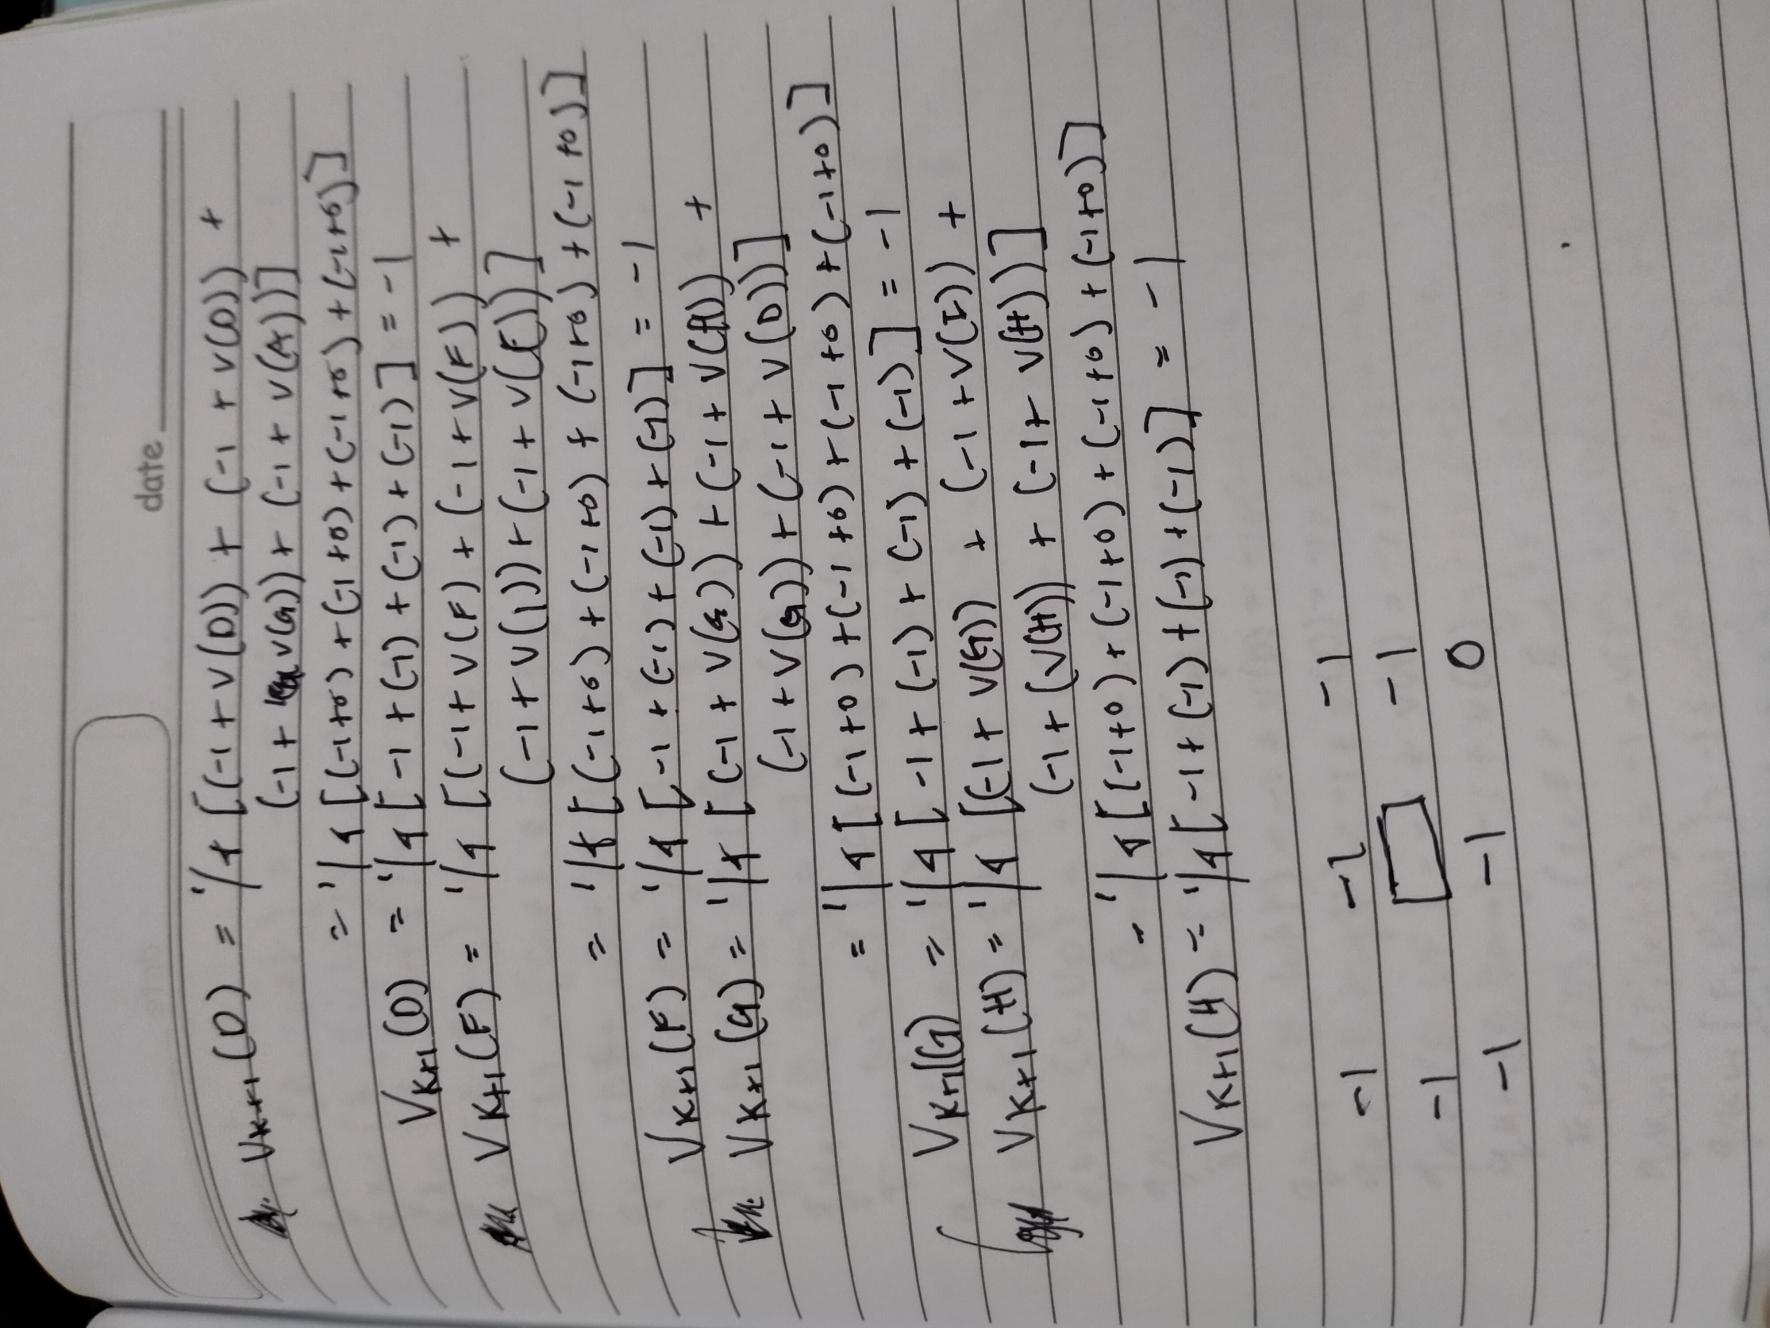 date
V_{K+1}(D) = 1/4 [(-1 + V(D)) + (-1 + V(D)) +
(-1 + V(G)) + (-1 + V(A))]
= 1/4 [(-1+0) + (-1+0) + (-1+0) + (-1+0)]
V_{K+1}(D) = 1/4 [-1 + (-1) + (-1) + (-1)] = -1
V_{K+1}(F) = 1/4 [(-1 + V(F) + (-1 + V(F)) +
(-1 + V(I)) + (-1 + V(E))]
= 1/4 [(-1+0) + (-1+0) + (-1+0) + (-1+0)]
V_{K+1}(F) = 1/4 [-1 + (-1) + (-1) + (-1)] = -1
V_{K+1}(G) = 1/4 [(-1 + V(G)) + (-1 + V(H)) +
(-1 + V(G)) + (-1 + V(D))]
= 1/4 [(-1+0) + (-1+0) + (-1+0) + (-1+0)]
V_{K+1}(G) = 1/4 [-1 + (-1) + (-1) + (-1)] = -1
V_{K+1}(H) = 1/4 [(-1 + V(G)) + (-1 + V(I)) +
(-1 + (V(H)) + (-1 + V(H))]
= 1/4 [(-1+0) + (-1+0) + (-1+0) + (-1+0)]
V_{K+1}(H) = 1/4 [-1 + (-1) + (-1) + (-1)] = -1
-1 -1 -1
-1 -1
-1 -1 0